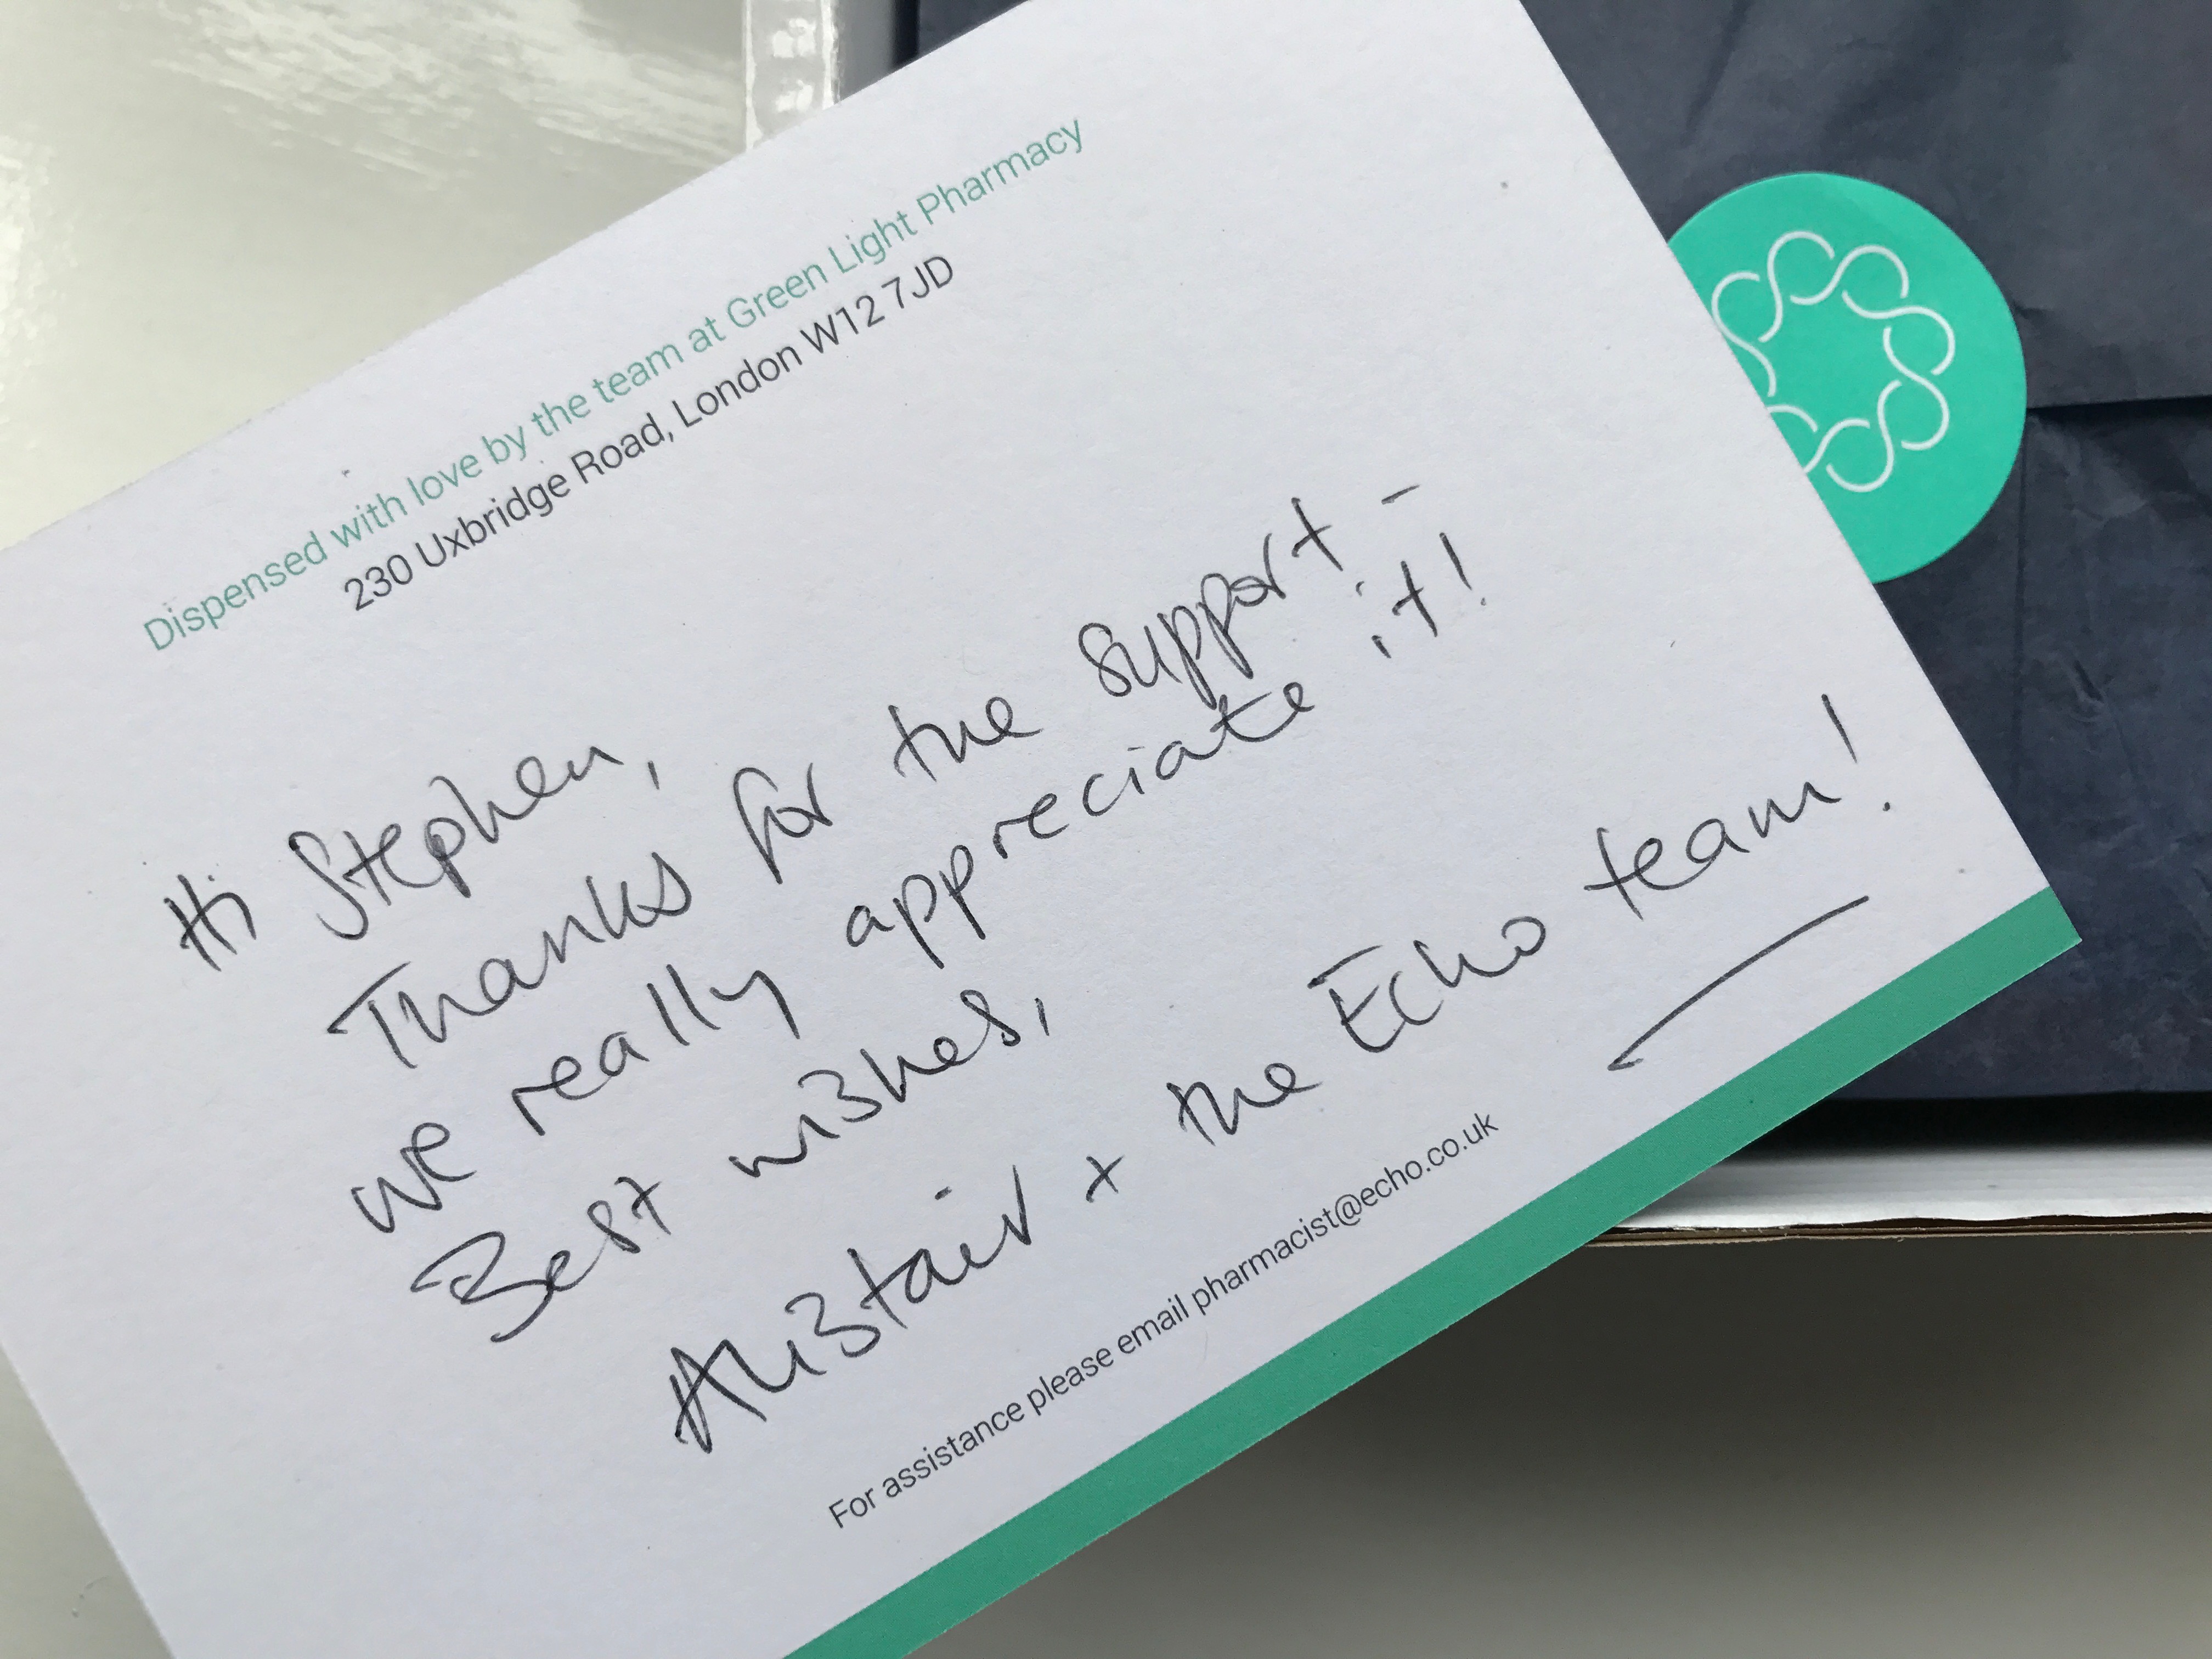 Dispensed with love by the team at Green Light Pharmacy
230 Uxbridge Road, London W12 7JD
Hi Stephen,
Thanks for the support -
we really appreciate it!
Best wishes,
Alistair + the Echo team!
For assistance please email pharmacist@echo.co.uk